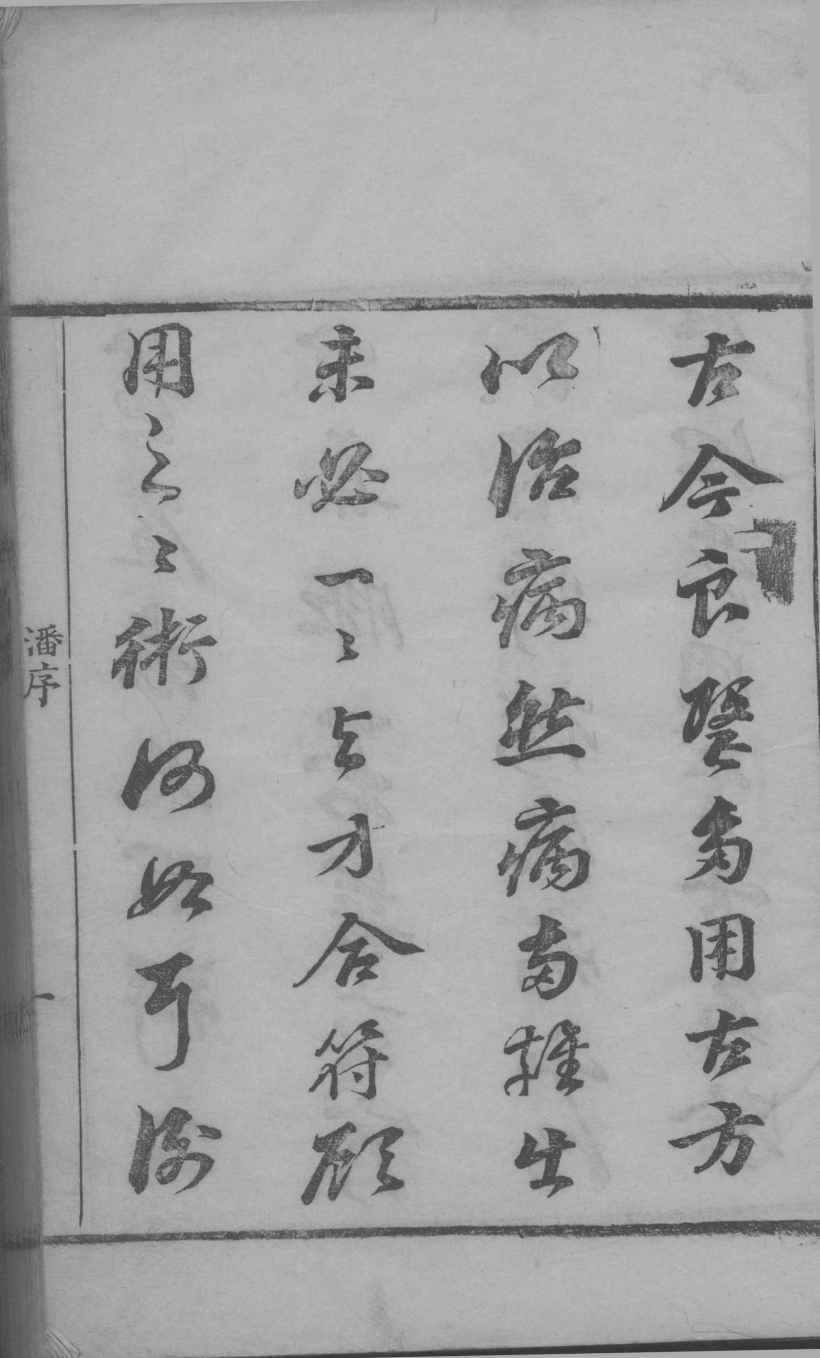 古今良醫多用古方
以治病然病每雜出
未必一〻与方合符顧
用之〻術何如耳
潘序
一